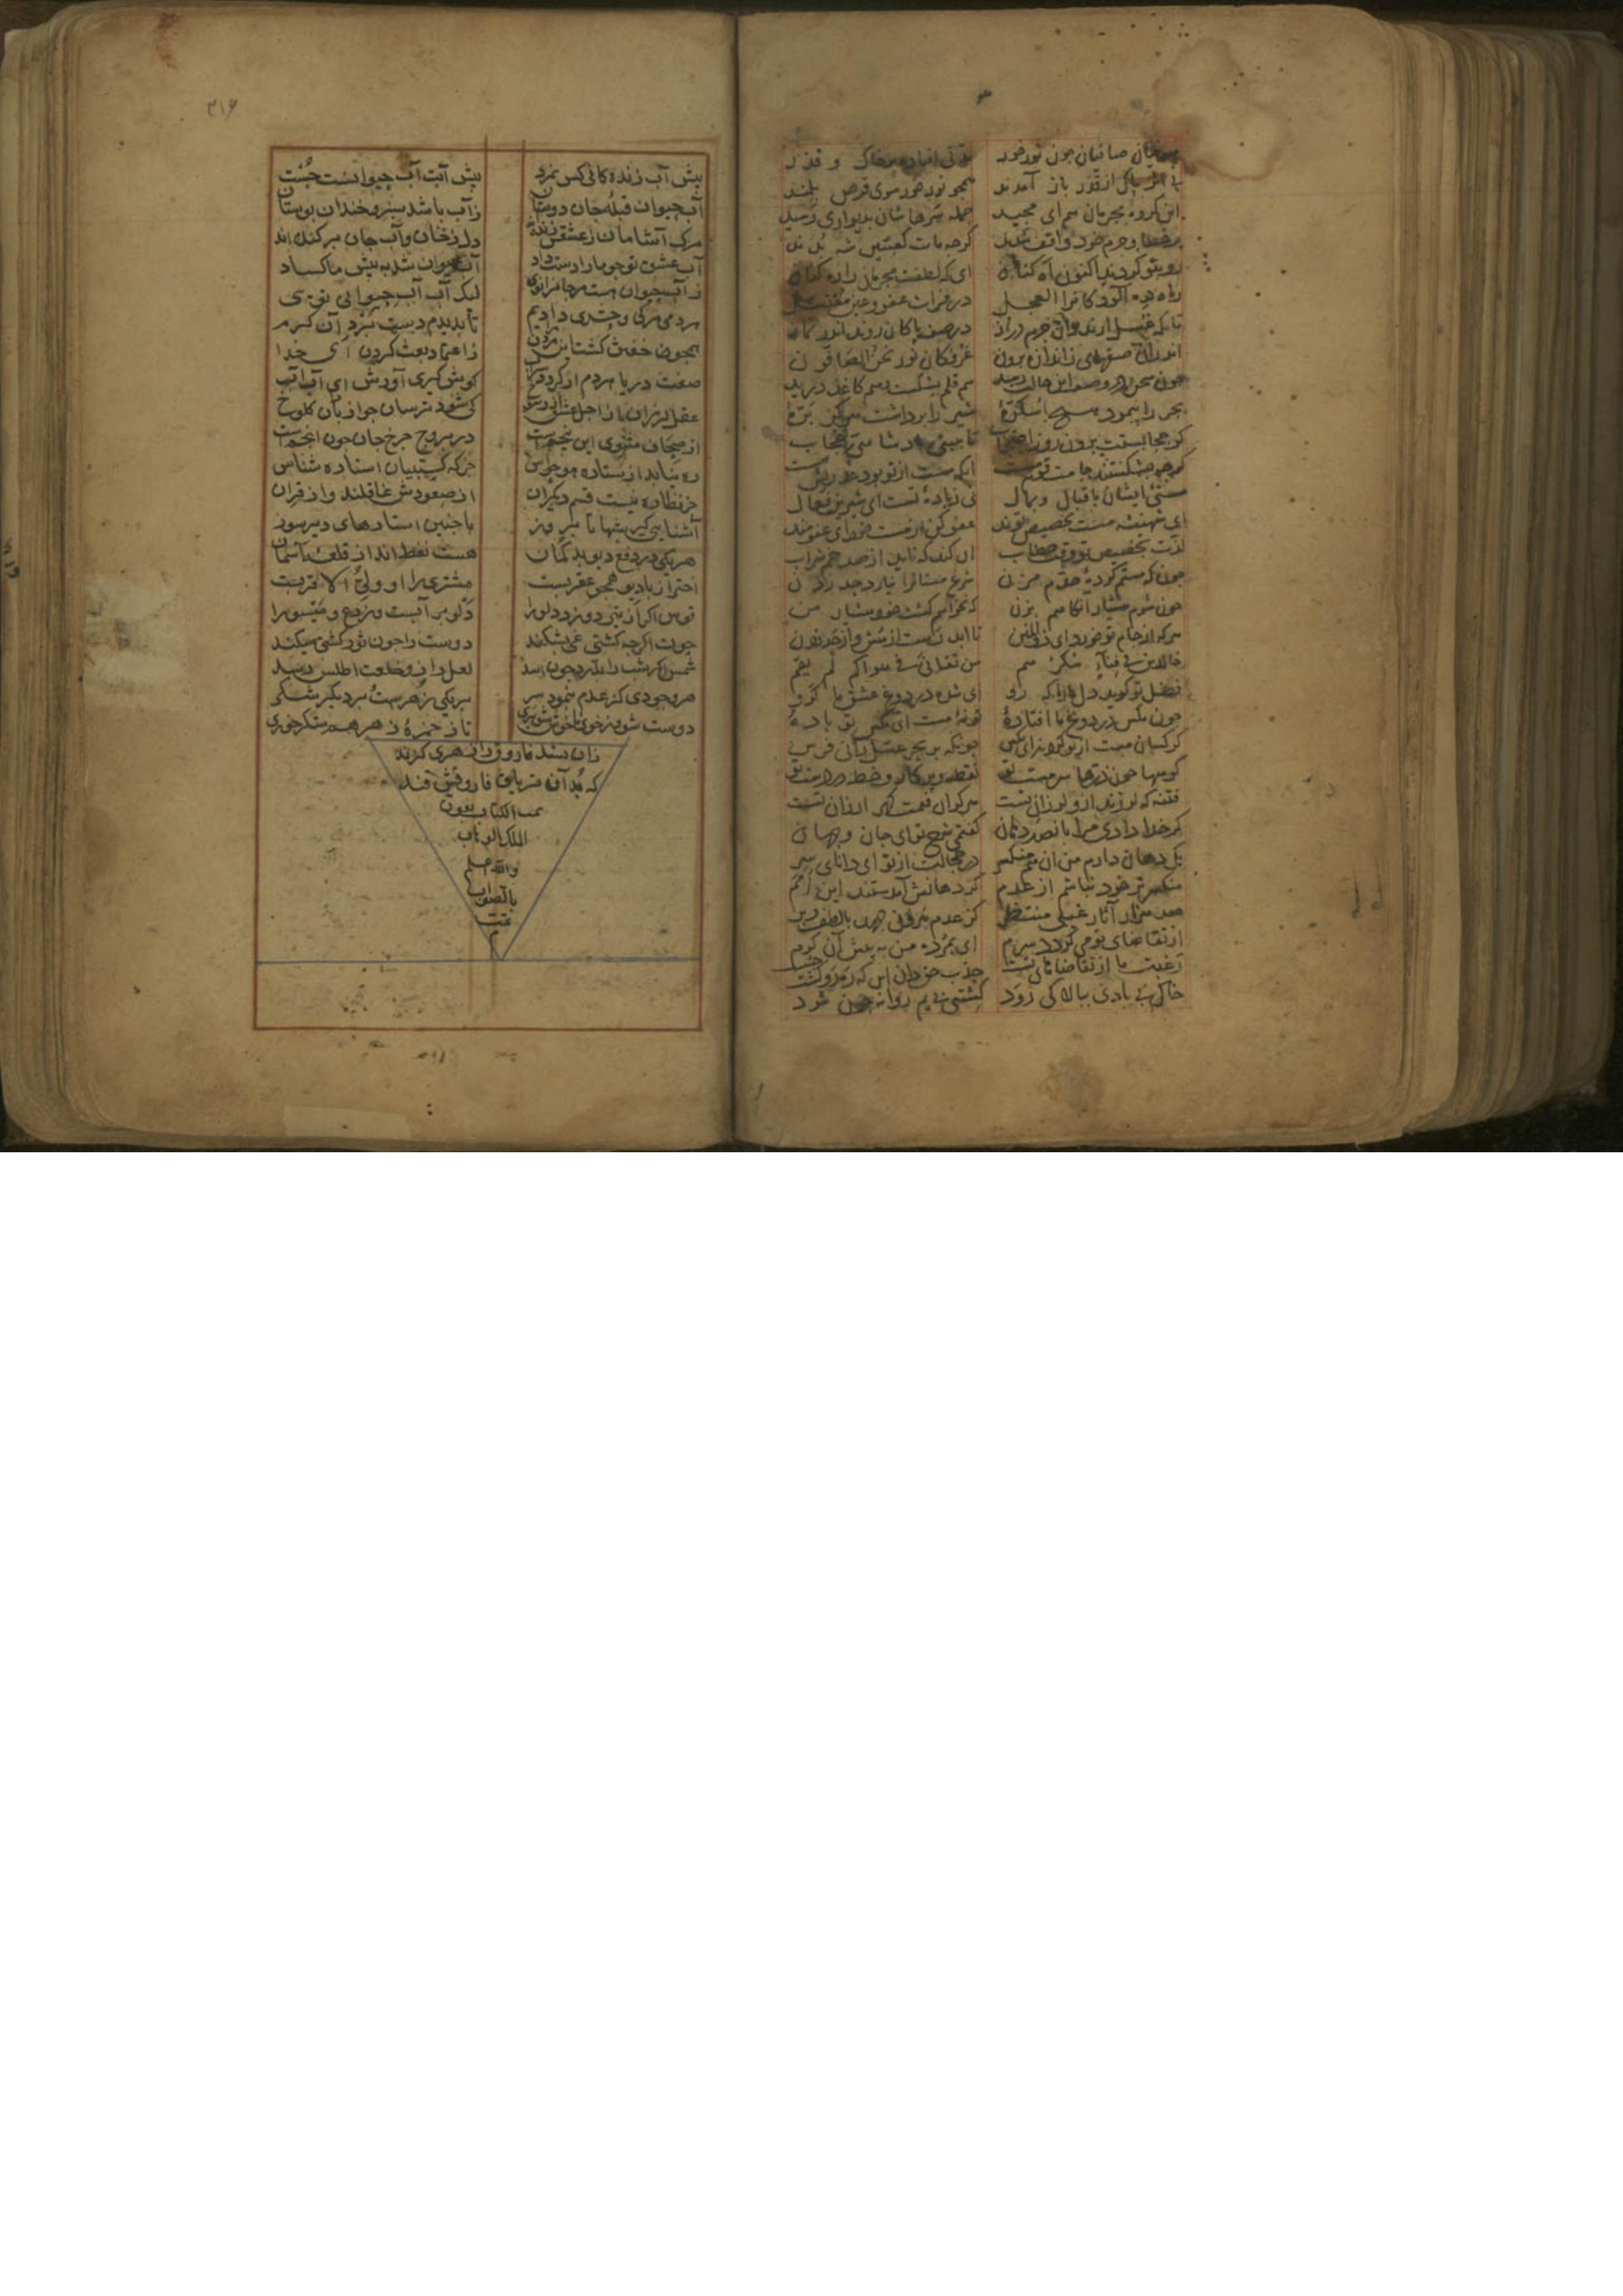 ۳
همچنان صافیان چون نور خور
مدتی افتاده بر خاک و قذر
بی اثر پاک از قذر باز آمدند
همچو نور خور سوی قرص بلند
این کروه مجرمان هم ای مجید
جمله سرهاشان بدیواری رسید
بر خطا و جرم خود واقف شدند
کرچه مات کعبتین شه بدند
رو بتو کردند اکنون اه کنان
ای که لطفت مجرمان را ره کنان
راه ده آلودکانرا العجل
در فرات عفو و عین مغتسل
تا که غسل ارند زان جرم دراز
در صف پاکان روند اندر نماز
اندران صفهای ز اندازه برون
غرقکان نور نحن الصافون
چون سخن در وصف این حالت رسید
هم قلم بشکست و هم کاغذ درید
بحر را پیمود هیچ اسکره
شیر را برداشت هرکز بره
کر حجابستت برون رو ز احتجاب
تا ببینی پادشاهی عجاب
کرچه بشکستند جامت قوم مست
آنکه مست از تو بود عذریش هست
مستی ایشان باقبال و بمال
نی زباده تست ای شیرین فعال
ای شهنشه مست تخصیص توند
عفو کن از مست خود ای عفومند
لذت تخصیص تو وقت خطاب
آن کند که ناید از صد خم شراب
چون که مستم کرده حدم مزن
شرع مستانرا نیارد حد زدن
چون شوم هشیار آنکاهم بزن
که نخواهم کشت خود هشیار من
هر که از جام تو خورد ای ذوالمنن
تا ابد رست از هش و از حد زدن
خالدین فی فناء سکرهم
من تفانی فی هواکم لم یقم
فضل تو کوید دل ما را که رو
ای شده در دوغ عشق ما کرو
چون مکس در دوغ ما افتاده
تو نه مست ای مکس تو باده
کرکسان مست از تو کردند ای مکس
چونکه بر بحر عسل رانی فرس
کوهها چون ذرها سرمست تو
نقطه و پرکار و خط در دست تو
فتنه که لرزند ازو لرزان تست
هر کران قیمت کهر ارزان تست
کر خدا دادی مرا پانصد دهان
کفتمی شرح تو ای جان و جهان
یک دهان دارم من آن هم منکسر
در خجالت از تو ای دانای سر
منکسرتر خود نباشم از عدم
کز دهانش آمدستند این امم
صد هزار آثار غیبی منتظر
کز عدم بیرون جهد بالطف و بر
از تقاضای تو می کردد سرم
ای بمرده من به پیش آن کرم
رغبت ما از تقاضای تست
جذبه حق دان این که رهرو کشت چست
خاک بی بادی ببالا کی رود
کشتی بی یم روانه چون شود
۳۱۶
پیش آب زنده کانی کس نمرد
پیش آبت آب حیوانست جست
آب حیوان قبله جان دوستان
زآب باشد سبز و خندان بوستان
مرک آشامان ز عشقش زنده
دل ز خان و آب جان برکنده اند
آب عشق تو چو ما را دست داد
آب حیوان شد به پیش ما کساد
ز آب حیوان هست هر جا نرا نوی
لیک آب آب حیوانی توی
هر دمی مرکی و حشری دادیم
تا بدیدم دست برد آن کرم
همچون خفتن کشت این مردن
ز اعتماد بعث کردن ای خدا
هفت دریا هر دم ار کردد سراب
کوش کیری آوردش ای آب آب
عقل لرزان از اجل عشق
کی شود ترسان جو از باران کلوخ
از صحاف مثنوی این پنجم است
در بروج چرخ جان چون انجم است
ره نیابد از ستاده هر حواس
جزکه کشتیبان استاره شناس
جز نظاره نیست قسم دیکران
از سعودش غافلند و از قران
آشنایی کیر شبها تا بروز
با چنین استارهای دیوسوز
هریکی در دفع دیو بدکمان
هست نفط انداز قلعه آسمان
اختر ار با دیو همچو عقربست
مشتری را او ولی الاقربست
قوس اکر از تیر دوزد دیو را
دلو پر آبست و زرع و میوه را
حوت اکرچه کشتی غی بشکند
دوست را چون ثور کشتی میکند
شمس اکر شب را بدرد چون اسد
لعل را زو خلعت اطلس رسد
هر وجودی کز عدم بنمود سر
بر یکی زهرست و بر دیکر شکر
دوست شو وز خوی ناخوش شو بری
تا ز خمره زهر هم شکر خوری
زان نشد فاروق را زهری کزند
که بد آن تریاق فاروقیش قند
تمت الکتاب بعون
الملک الوهاب
والله اعلم
بالصواب
تمت
م